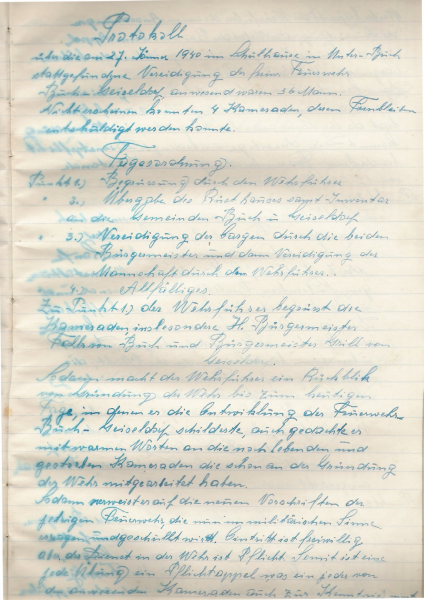 Protokoll
über die am 27. Jänner 1940 im Schulhause in Unter-Buch
stattgefundene Vereidigung der freiw. Feuerwehr
Buch-Geiseldorf, anwesend waren 36 Mann.
Nicht erscheinen konnten 4 Kameraden, deren Fernbleiben
entschuldigt werden konnte.
Tagesordnung.
Punkt 1.) Begrüssung durch den Wehrführer
" 2.) Übergabe des Rüsthauses samt Inventar
an die Gemeinden Buch u. Geiseldorf
" 3.) Vereidigung der Chargen durch die beiden
Bürgermeister und dann Vereidigung der
Mannschaft durch den Wehrführer.
" 4.) Allfälliges.
Zu Punkt 1.) der Wehrführer begrüsst die
Kameraden insbesondere H. Bürgermeister
von Buch und Bürgermeister Grill von
Sodann macht der Wehrführer ein Rückblick
von Gründung der Wehr bis zum heutigen
Tage, in denen er die Entwicklung der Feuerwehr
Buch-Geiseldorf schilderte, auch gedachte er
mit warmen Worten an die noch lebenden und
gestorben Kameraden die schon an der Gründung
der Wehr mitgearbeitet haben.
Sodann verweist er auf die neuen Vorschriften der
jetzigen Feuerwehr, die nun im militärischen Sinne
erzogen und geschult wird. Eintritt ist freiwillig
aber der Dienst in der Wehr ist Pflicht. Somit ist eine
jede (Übung) ein Pflichtappel was ein jeder von
den anwesenden Kameraden auch zur Kenntnis